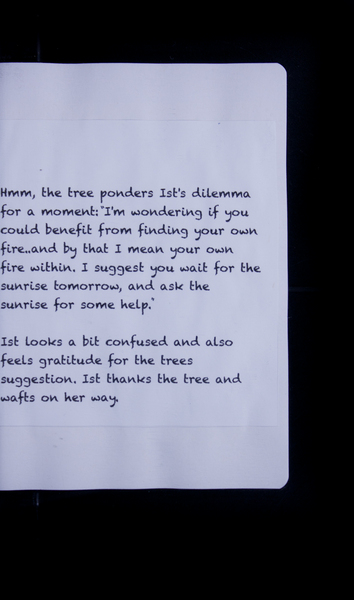 Hmm, the tree ponders Ist's dilemma
for a moment:"I'm wondering if you
could benefit from finding your own
fire..and by that I mean your own
fire within. I suggest you wait for the
sunrise tomorrow, and ask the
sunrise for some help."
Ist looks a bit confused and also
feels gratitude for the trees
suggestion. Ist thanks the tree and
wafts on her way.